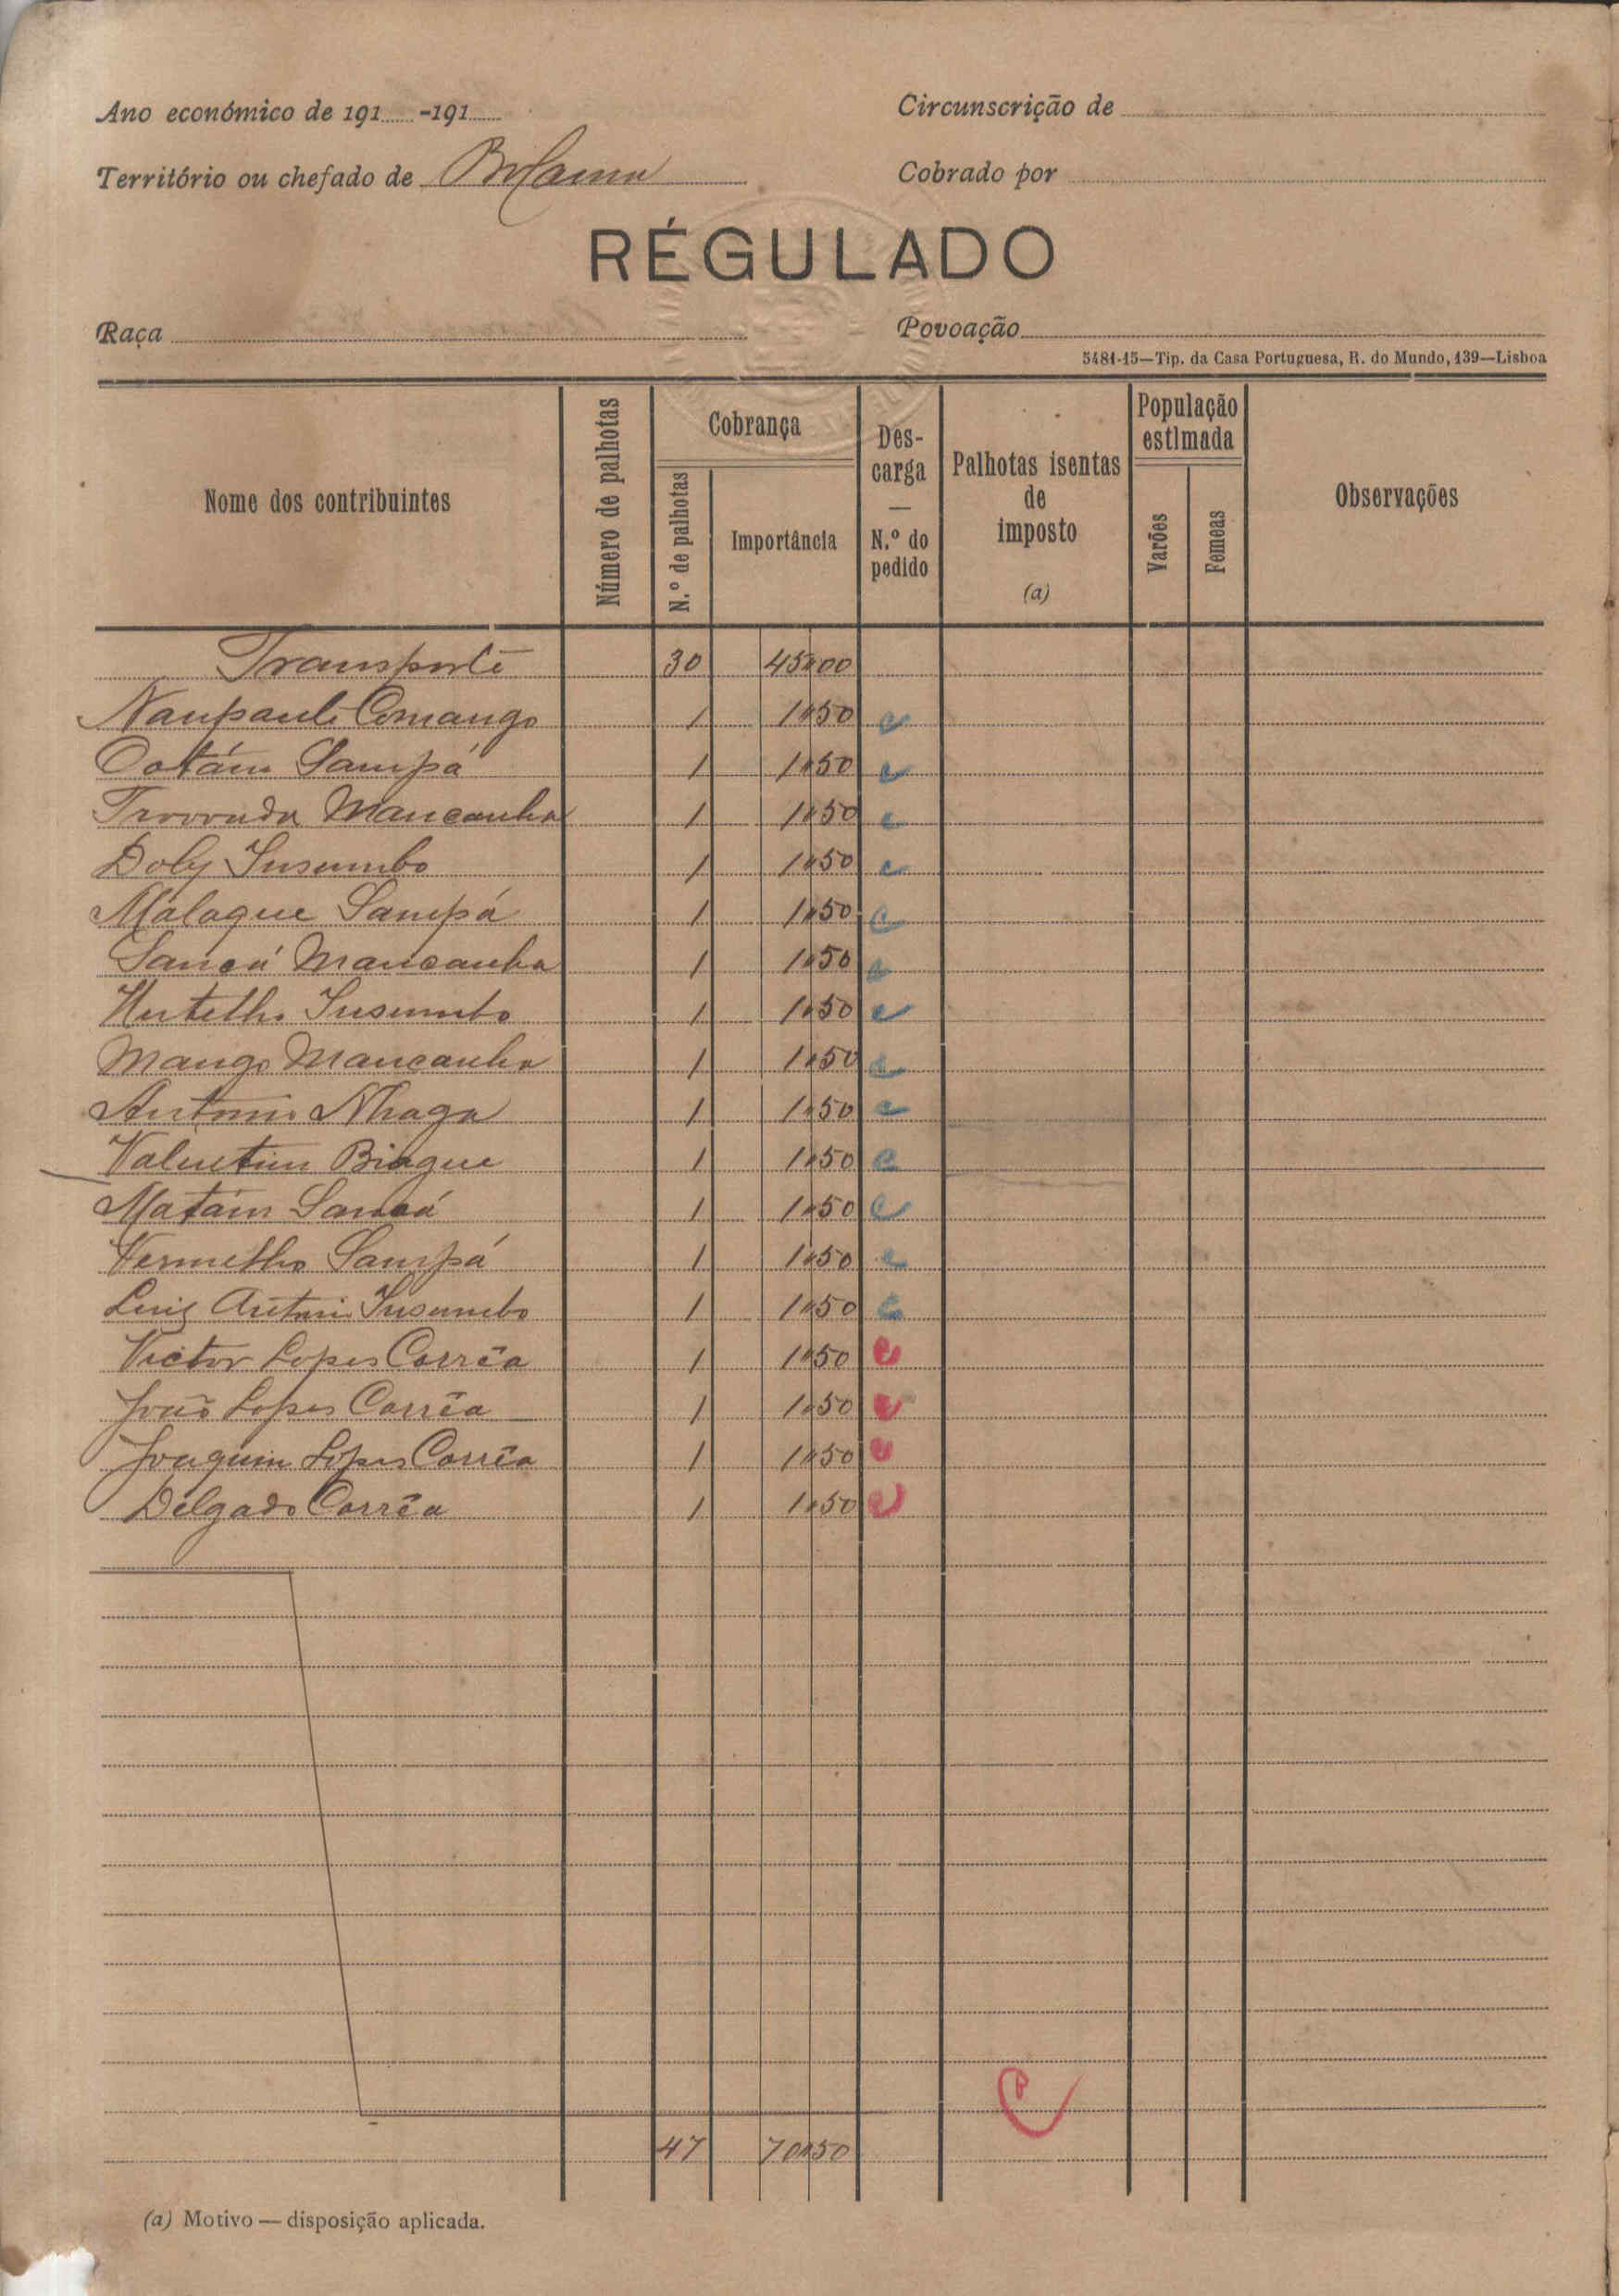 Ano económico de 191 -191
Circunscrição de
Território ou chefado de Bolama
Cobrado por
RÉGULADO
Raça
Povoação
5481-15—Tip. da Casa Portuguesa, R. do Mundo, 139—Lisboa
Nome dos contribuintes
Número de palhotas
Cobrança
N.º de palhotas
Importância
Descarga
—
N.º do pedido
Palhotas isentas de imposto
(a)
População estimada
Varões
Femeas
Observações
Transporte 30 45$00
Comango 1 1$50 c
Sampá 1 1$50 c
Mancanha 1 1$50 c
Doly Susumbo 1 1$50 c
Malaque Sampá 1 1$50 c
Sancá Mancanha 1 1$50 c
Susumbo 1 1$50 c
Mango Mancanha 1 1$50 c
Antonio Nhaga 1 1$50 c
Valentim Biague 1 1$50 c
Matám Sancá 1 1$50 c
Vermelho Sampá 1 1$50 c
Luiz Antonio Susumbo 1 1$50 c
Victor Lopes Corrêa 1 1$50 c
João Lopes Corrêa 1 1$50 c
Joaquim Lopes Corrêa 1 1$50 c
Delgado Corrêa 1 1$50 c
47 70$50
(a) Motivo — disposição aplicada.